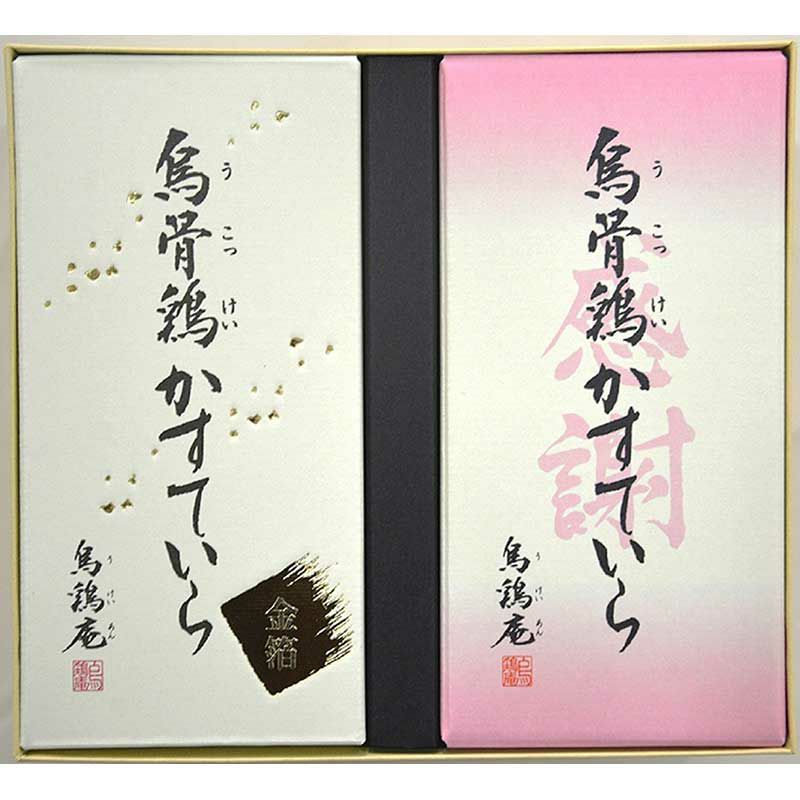 烏骨鶏かすていら
うこっけい
烏鶏庵
うけいあん
金箔
烏骨鶏かすていら
うこっけい
感謝
烏鶏庵
うけいあん